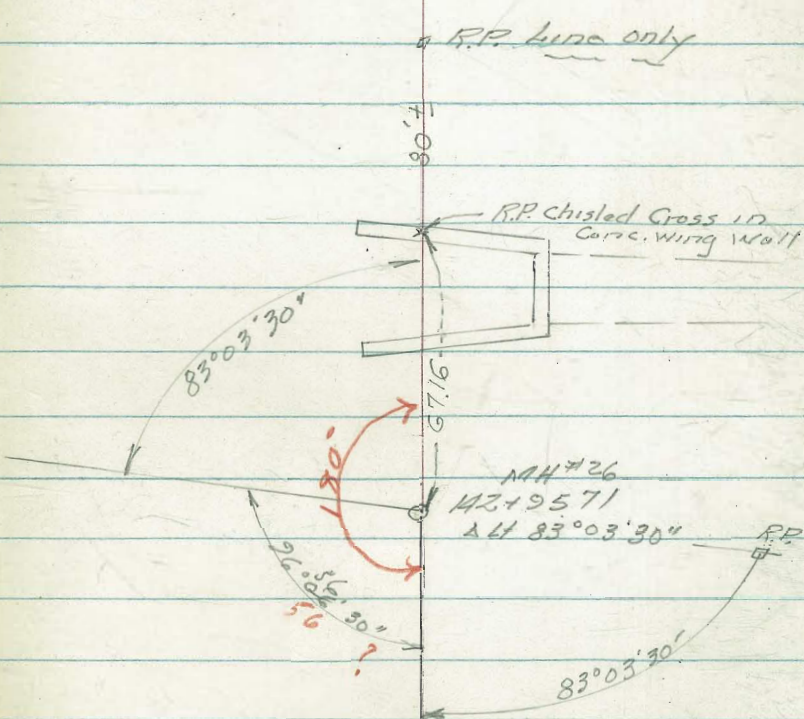 R.P. Line only
80'±
R.P. Chisled Cross in
Conc. Wing Wall
83°03'30"
67.16
180°
MH #26
142+95.71
Δ Lt 83°03'30"
R.P.
96°56'30"
56
?
83°03'30'